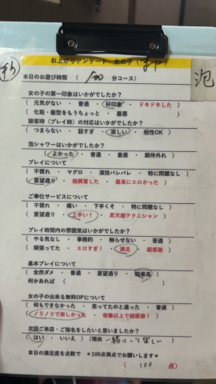 お上がりアンケート 女の子(
泡
本日のお遊び時間 ( 100 分コース)
女の子の第一印象はいかがでしたか?
( 元気がない ・ 普通 ・ 好印象 ・ ドキドキした )
( 化粧・髪型をもうちょっと ・ 最悪 )
接客時(プレイ前)の対応はいかがでしたか?
( つまらない ・ 話すぎ ・ 楽しい ・ 相性OK )
泡シャワーはいかがでしたか?
( よかった ・ 普通 ・ 最悪 ・ 期待外れ )
プレイについて
( 不慣れ ・ マグロ ・ 演技バレバレ ・ 特に問題なし )
( 要望通り ・ 超興奮した ・ 最高にエロかった )
ご奉仕サービスについて
( 不慣れ ・ 痛い ・ 下手くそ ・ 特に問題なし )
( 要望通り ・ 上手い! ・ 昇天級テクニシャン )
プレイ時間内の雰囲気はいかがでしたか?
( やる気なし ・ 事務的 ・ 触らせない ・ 普通 )
( 頑張ってた ・ エロすぎ! ・ 満足 ・ 超感激 )
基本プレイについて
( 全然ダメ ・ 普通 ・ 要望通り ・ 超最高 )
何かあれば (
女の子の出来る無料OPについて
( 何もできなかった ・ 思ってたのと違った ・ 普通 )
( ノリノリで楽しかった ・ 想像以上で超感激! )
次回ご来店・ご指名をしたいと思いましたか?
( はい ・ いいえ ) (理由
本日の満足度を点数で ※100点満点でお願いします※
( 100 点 )